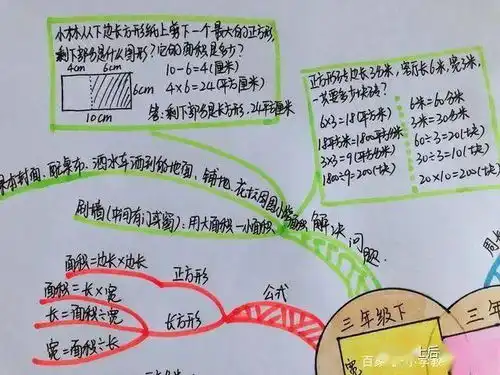 小林从下边长方形纸上剪下一个最大的正方形,
剩下部分是什么图形?它的面积是多少?
4cm 6cm
6cm
10cm
10-6=4(厘米)
4×6=24(平方厘米)
答:剩下部分是长方形,24平方厘米
正方形砖边长3分米,客厅长6米,宽3米,
一共要多少块砖?
6×3=18(平方米)
18平方米=1800平方分米
3×3=9(平方分米)
1800÷9=200(块)
6米=60分米
3米=30分米
60÷3=20(块)
30÷3=10(块)
20×10=200(块)
课本封面、配桌布、洒水车洒到的地面、铺地、花坛周围小路面积
刷墙(中间有门或窗):用大面积-小面积
解决问题
面积=边长×边长
正方形
面积=长×宽
长=面积÷宽
宽=面积÷长
长方形
公式
三年级下
三年
周长
宽
上后